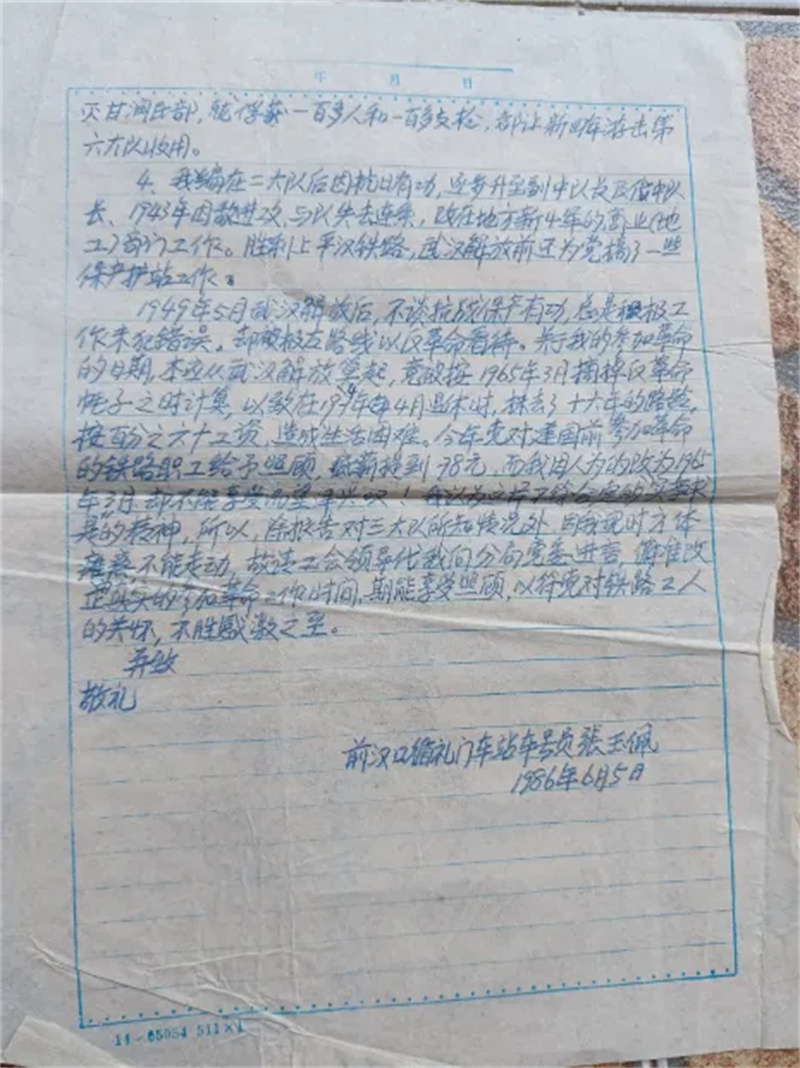 年 月 日
灭甘润民部，能俘获一百多人和一百多支枪，都让新四军游击第
六大队收用。
4、我编在二大队后因抗日有功，逐步升至副中队长及代中队
长、1943年因敌进攻，与队失去连系，改在地方新4军的商业（地
工）部门工作。胜利上平汉铁路，武汉解放前还为党搞了一些
保产护站工作。
1949年5月武汉解放后，不谈抗战保产有功，总是积极工
作未犯错误，却被极左路线以反革命看待。关于我的参加革命
的日期，本应从武汉解放算起，竟改按1965年3月摘掉反革命
帽子之时计算，以致在 年4月退休时，抹去了十六年的路龄，
按百分之六十工资，造成生活困难。今年党对建国前参加革命
的铁路职工给予照顾，低薪提到78元，而我因人为的改为1965
年3月却不能享受而望洋兴叹！
是的精神，所以，除报告对三大队所知情况外，因我现时方体
不能走动，故请工会领导代我向分局党委进言，俯准改
正真实的参加革命工作时间，期能享受照顾，以符党对铁路工人
的关怀，不胜感激之至。
再致
敬礼
前汉口循礼门车站车号员张玉佩
1986年6月5日
14—65054 511×1